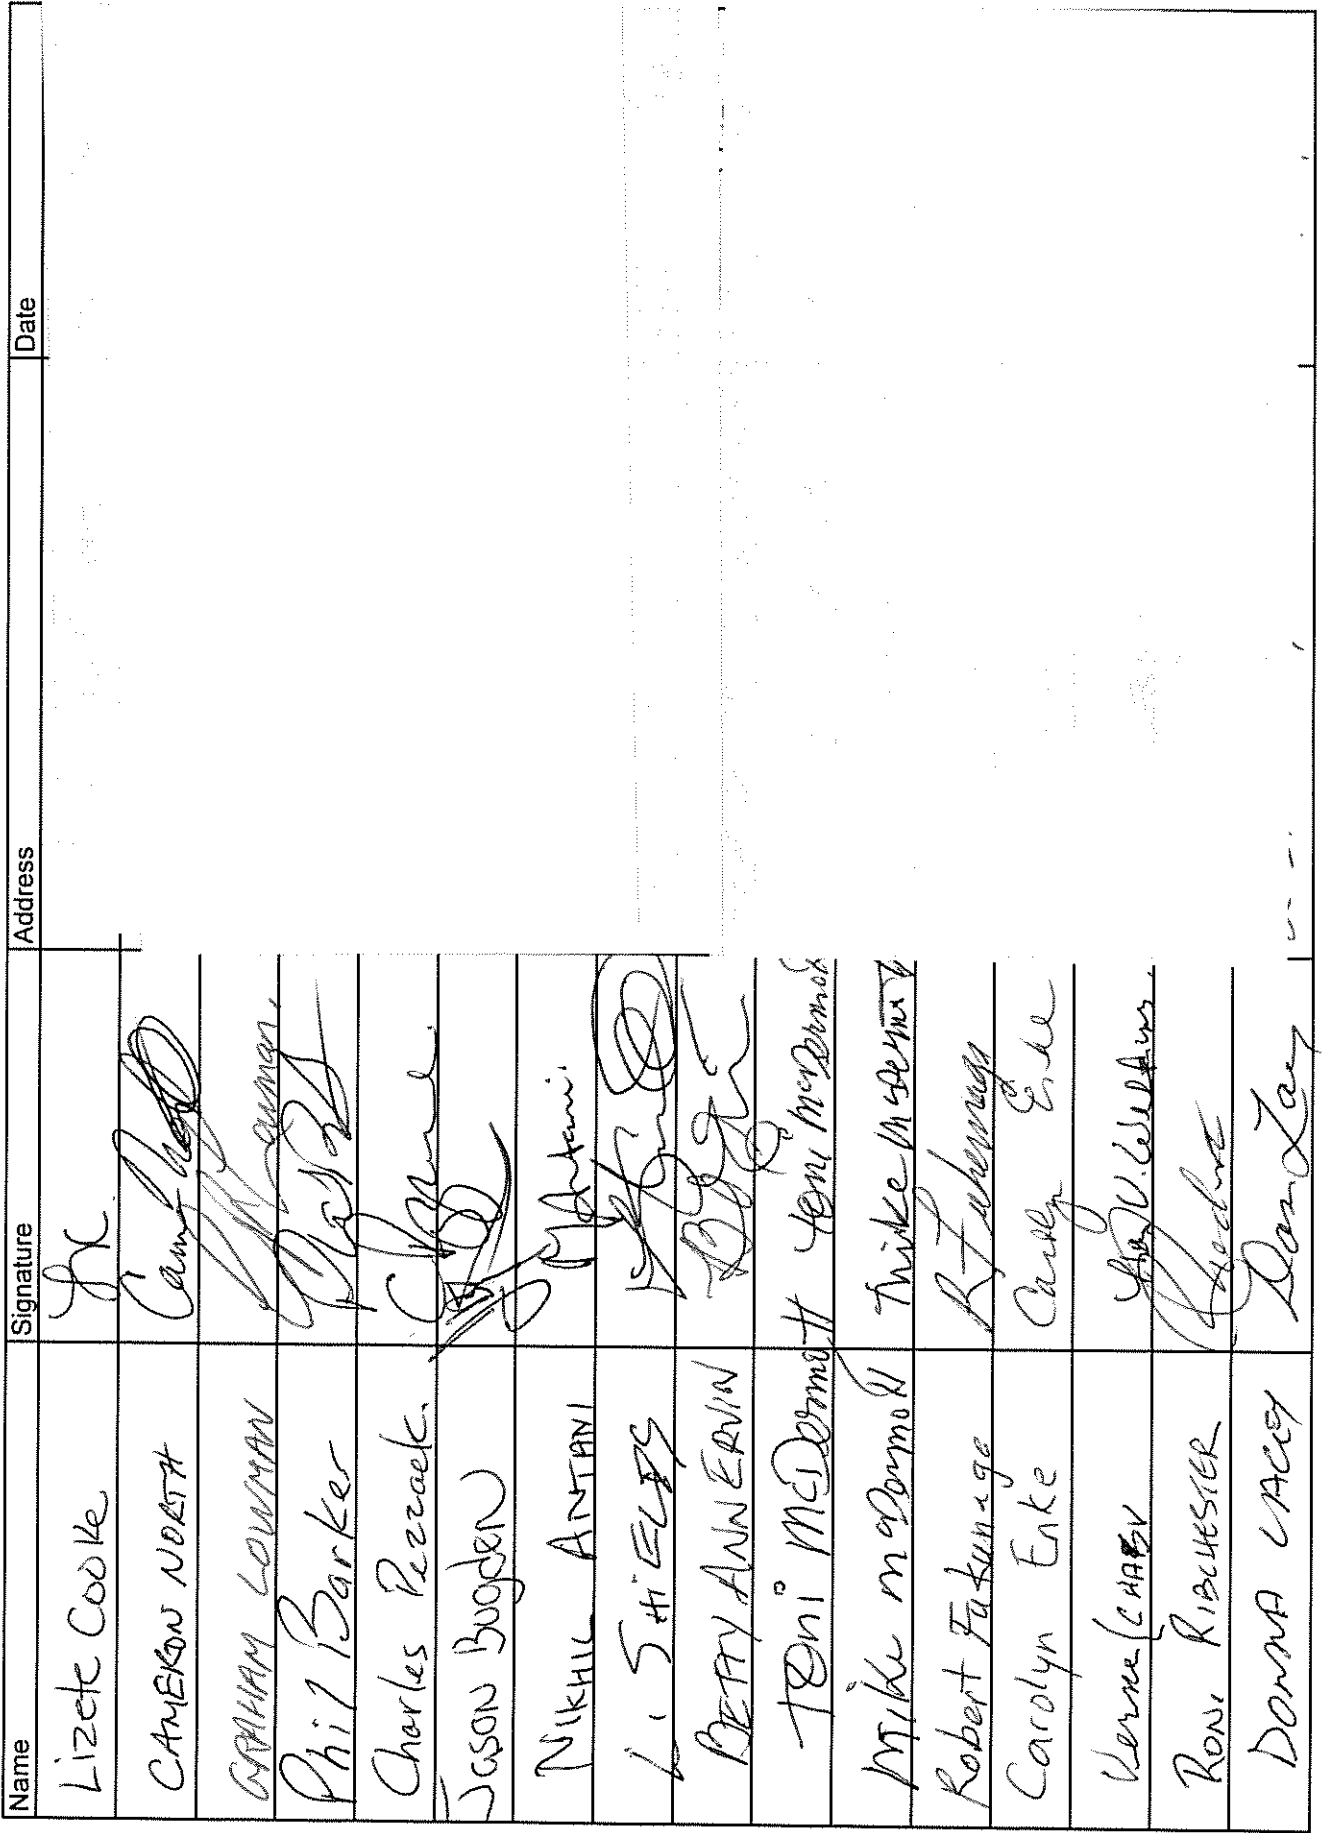 Name Signature Address Date
Lizete Cooke
CAMERON NORTH
GRAHAM LOWMAN
Phil Barker
Charles Pezzack.
Jason Bugden
NIKHIL ANTANI Antani.
L. SHIELDS
BETTY ANN ERVIN
Toni McDermott Toni McDermott
Mike McDermott Mike McDermott
Robert Fukunaga R Fukunaga
Carolyn Enke Carolyn Enke
Verna
RONI RIBCHESTER
DONNA LACEY Donna Lacey